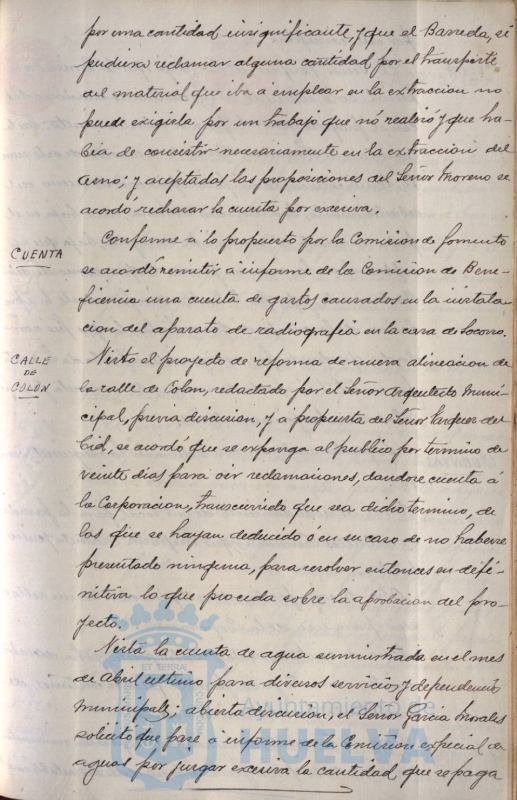 por una cantidad insignificante, y que el Barreda, si
pudiera reclamar alguna cantidad por el transporte
del material que iba á emplear en la extraccion no
puede exigirla por un trabajo que nó realizó y que ha-
bia de consistir necesariamente en la extraccion del
asno; y aceptadas las proposiciones del Señor Moreno se
acordó rechazar la cuenta por excesiva.
CUENTA
Conforme á lo propuesto por la Comision de fomento
se acordó remitir á informe de la Comision de Bene-
ficencia una cuenta de gastos causados en la instala-
cion del aparato de radiografia en la casa de Socorro.
CALLE
DE
COLON
Visto el proyecto de reforma de nueva alineacion de
la calle de Colon, redactado por el Señor Arquitecto Muni-
cipal, previa discusion, y á propuesta del Señor Vazquez del
Cid, se acordó que se exponga al publico por termino de
veinte dias para oir reclamaciones, dandose cuenta á
la Corporacion, transcurrido que sea dicho termino, de
las que se hayan deducido ó en su caso de no haberse
presentado ninguna, para resolver entonces en defi-
nitiva lo que proceda sobre la aprobacion del pro-
yecto.
Vista la cuenta de agua suministrada en el mes
de Abril ultimo para diversos servicios y dependencias
Municipales; abierta discusion, el Señor Garcia Morales
solicitó que pase á informe de la Comision especial de
aguas por juzgar excesiva la cantidad que se paga
ET TERRÆ
Ayuntamiento de
HUELVA